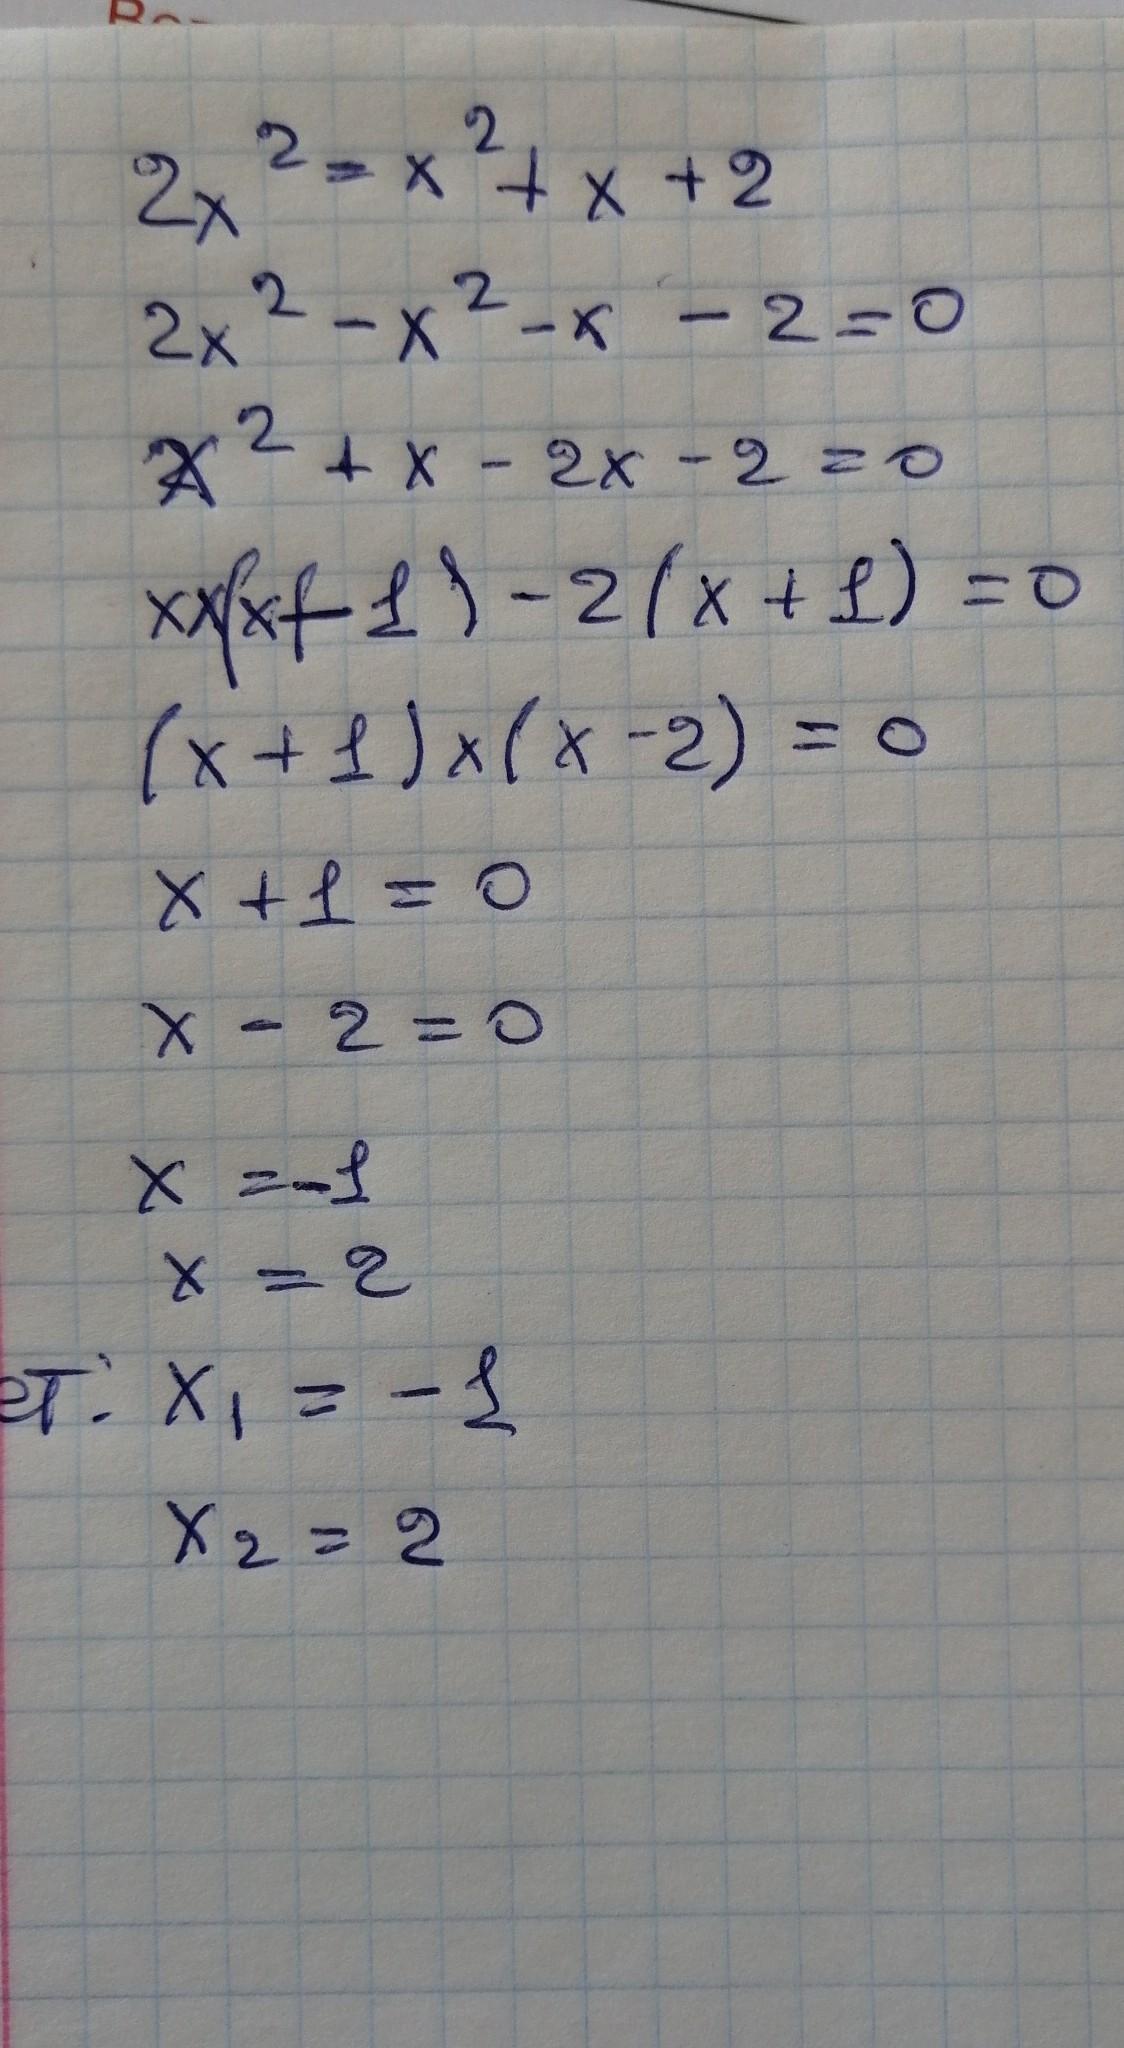 2x² = x² + x + 2
2x² - x² - x - 2 = 0
x² + x - 2x - 2 = 0
xx(x+1) - 2(x+1) = 0
(x+1)x(x-2) = 0
x + 1 = 0
x - 2 = 0
x = -1
x = 2
ет: x₁ = -1
x₂ = 2